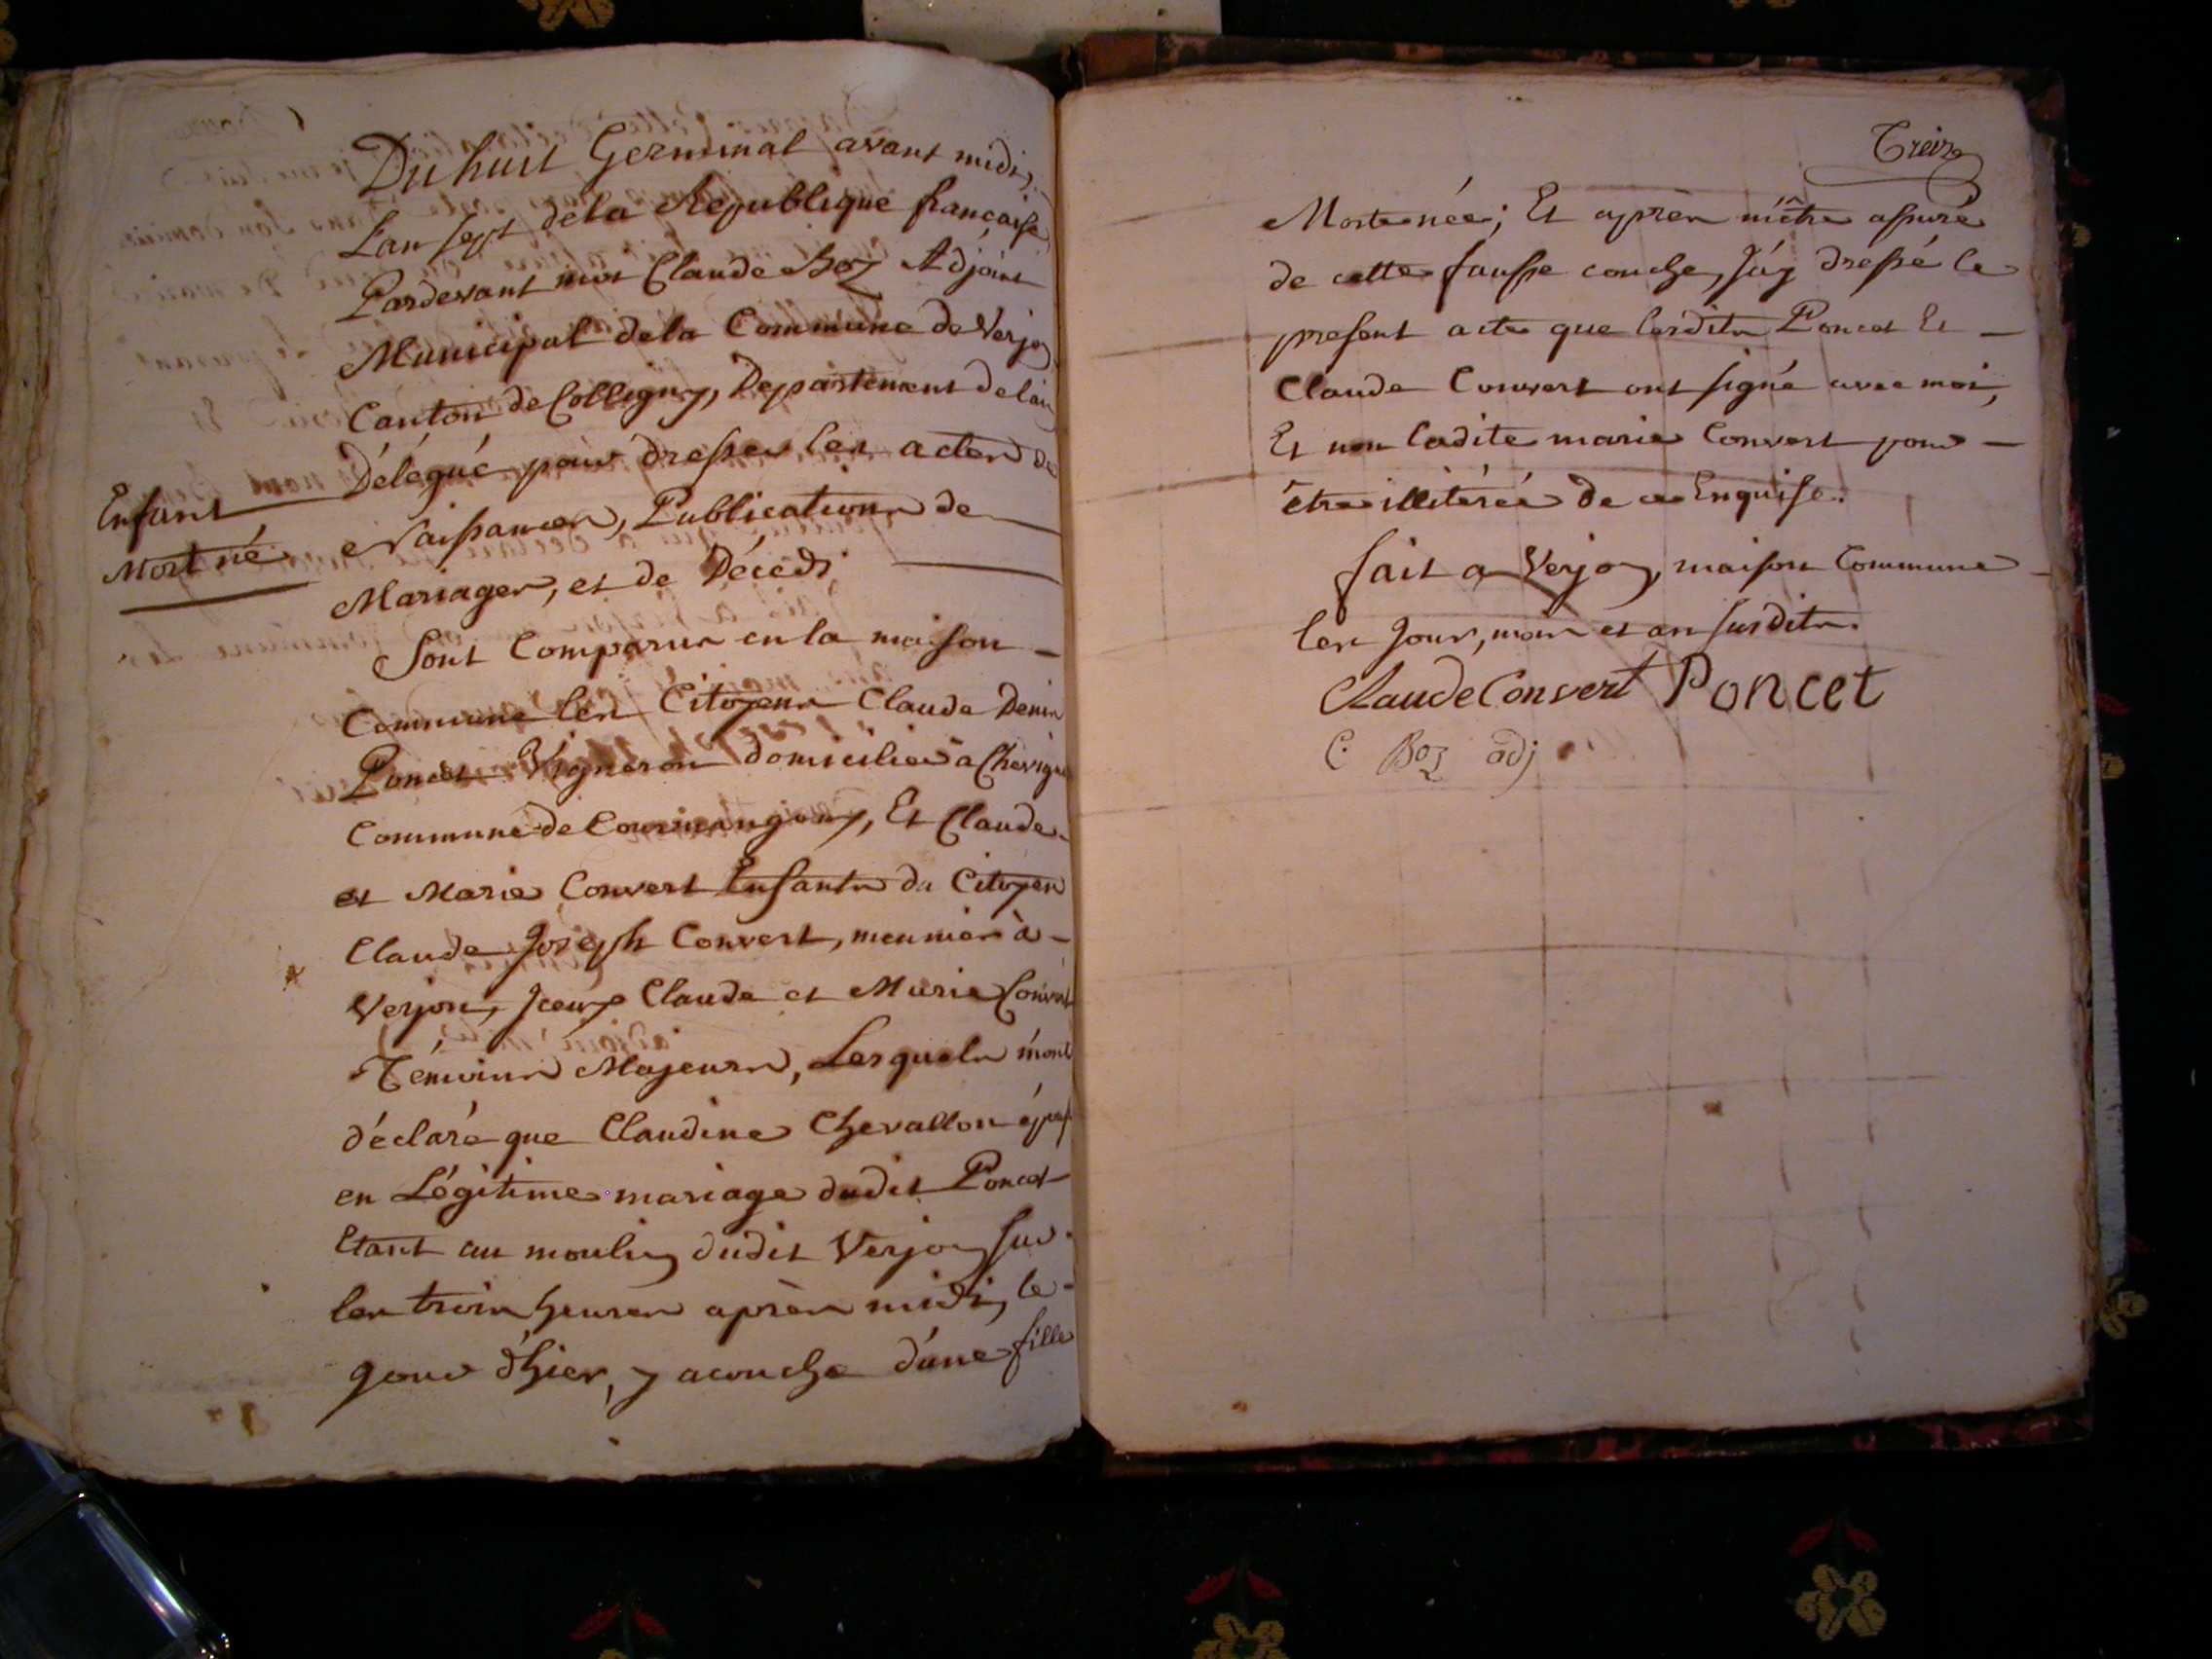 Du huit Germinal avant midi,
L'an sept de la Republique française
Pardevant moi Claude Boz Adjoint
Municipal de la Commune de Verjon
Canton de Colligny, Departement de lain
Délégué pour dresser les actes de
Enfant
Mort né
Naissances, Publications de
Mariages, et de Décèds
Sont Comparus en la maison
Commune les Citoyens Claude Denis
Poncet Vigneron domicilié à Chevigna
Commune de Courmangoux, Et Claude
et Marie Convert Enfants du Citoyen
Claude Joseph Convert, meunier à
Verjon, Iceux Claude et Marie Convert
Témoins Majeurs, Lesquels m'ont
déclaré que Claudine Chevallon épouse
en Légitime mariage dudit Poncet
Etant au moulin dudit Verjon sur
les trois heures après midi, le
jour d'hier, y acouche d'une fille
Treize
Morte née; Et après m'être assuré
de cette fausse couche, J'ay dressé le
present acte que lesdits Poncet Et
Claude Convert ont signé avec moi,
Et non ladite marie Convert pour
être illitérée de ce Enquise.
fait a Verjon, maison Commune
les Jour, mois et an susdits.
Claude Convert Poncet
C. Boz adj